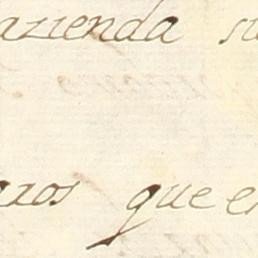 azienda su
oxos que en